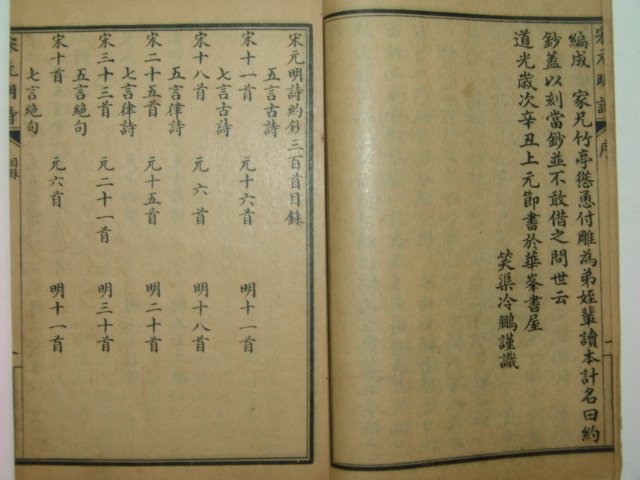 宋元明詩 序
編成 家兄竹亭慫恿付雕為弟姪輩讀本計名曰約
鈔蓋以刻當鈔並不敢借之問世云
道光歲次辛丑上元節書於華峯書屋
笑渠冷鵬謹識
宋元明詩約鈔三百首目錄
五言古詩
宋十一首 元十六首 明十一首
七言古詩
宋十八首 元六首 明十八首
五言律詩
宋二十五首 元十五首 明二十首
七言律詩
宋三十三首 元二十一首 明三十首
五言絕句
宋十首 元六首 明十一首
七言絕句
宋元明詩 目錄 一